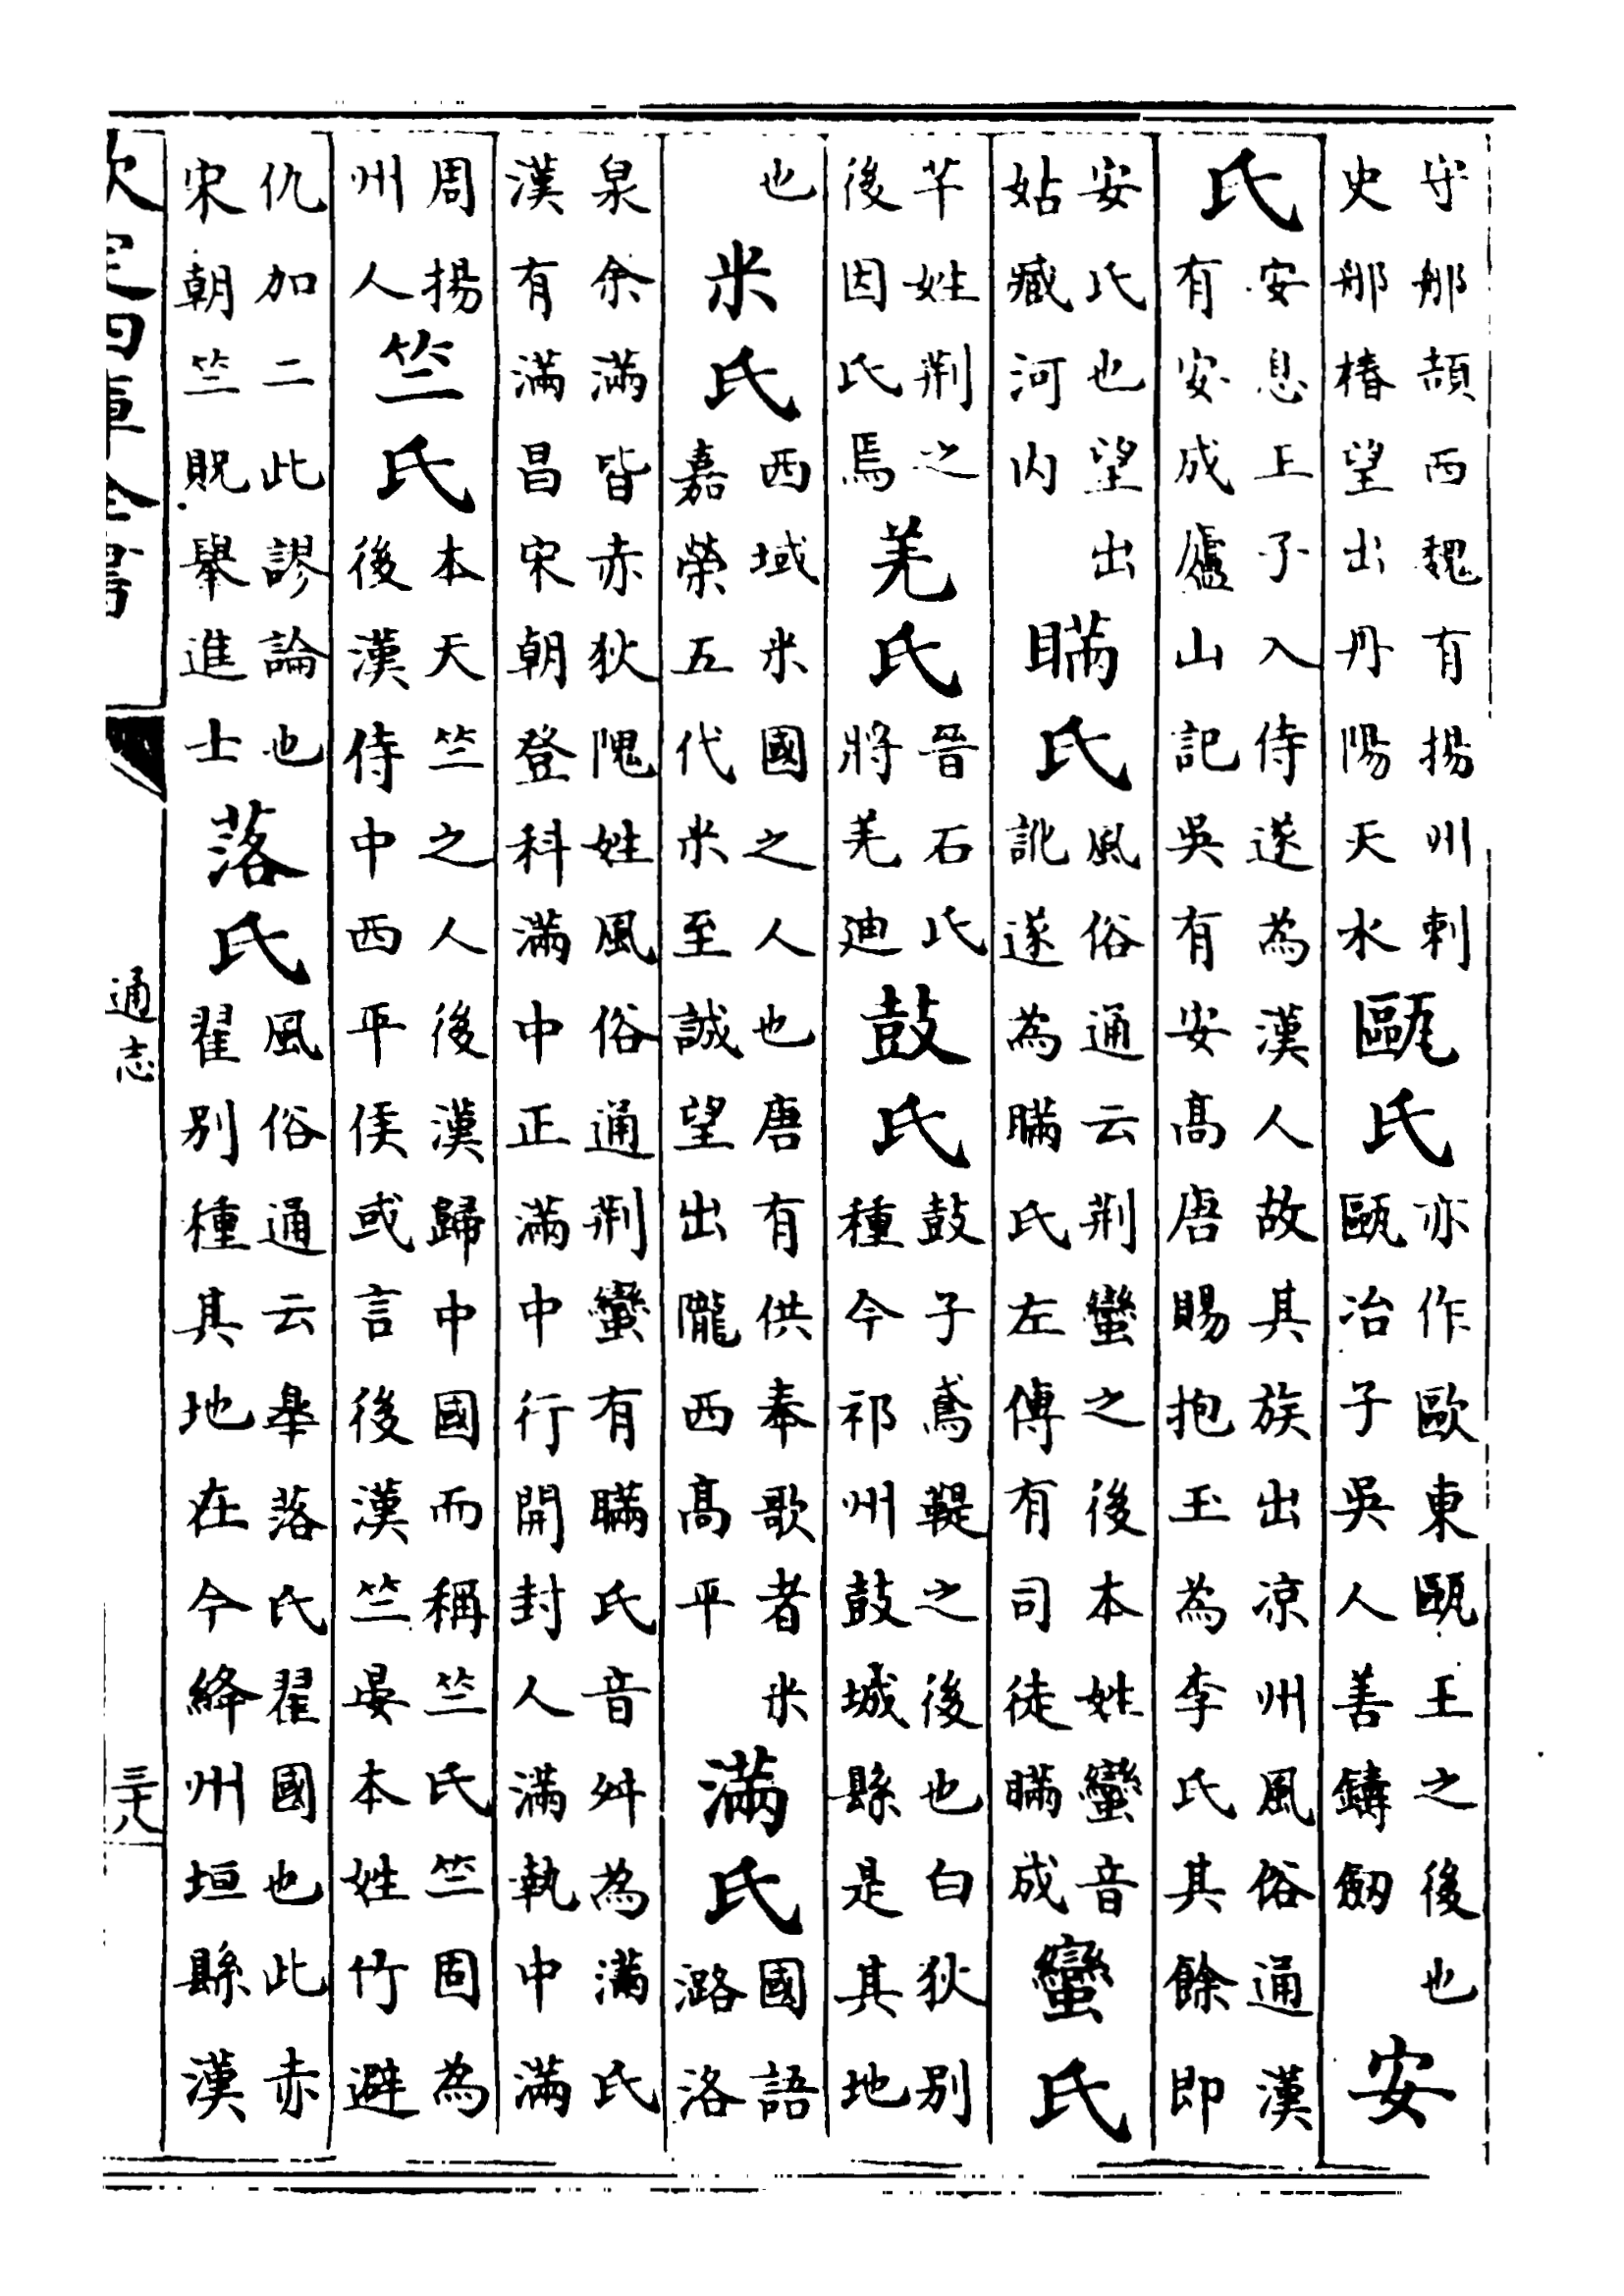 守那頡西魏有揚州刺
史那椿望出丹陽天水
甌氏
亦作歐東甌王之後也
甌冶子吳人善鑄劒
安
氏
安息王子入侍遂為漢人故其族出凉州風俗通漢
有安成廬山記吳有安髙唐賜抱玉為李氏其餘即
安氏也望出
姑臧河内
瞞氏
風俗通云荆蠻之後本姓蠻音
訛遂為瞞氏左傳有司徒瞞成
蠻氏
芊姓荆之
後因氏焉
羌氏
晉石氏
將羌廸
鼓氏
鼓子鳶鞮之後也白狄别
種今祁州鼓城縣是其地
也
米氏
西域米國之人也唐有供奉歌者米
嘉榮五代米至誠望出隴西髙平
滿氏
國語
潞洛
泉余滿皆赤狄隗姓風俗通荆蠻有瞞氏音舛為滿氏
漢有滿昌宋朝登科滿中正滿中行開封人滿執中滿
周揚
州人
竺氏
本天竺之人後漢歸中國而稱竺氏竺固為
後漢侍中西平侯或言後漢竺晏本姓竹避
仇加二此謬論也
宋朝竺貺舉進士
落氏
風俗通云臯落氏翟國也此赤
翟别種其地在今絳州垣縣漢
欽定四庫全書
通志
三十八